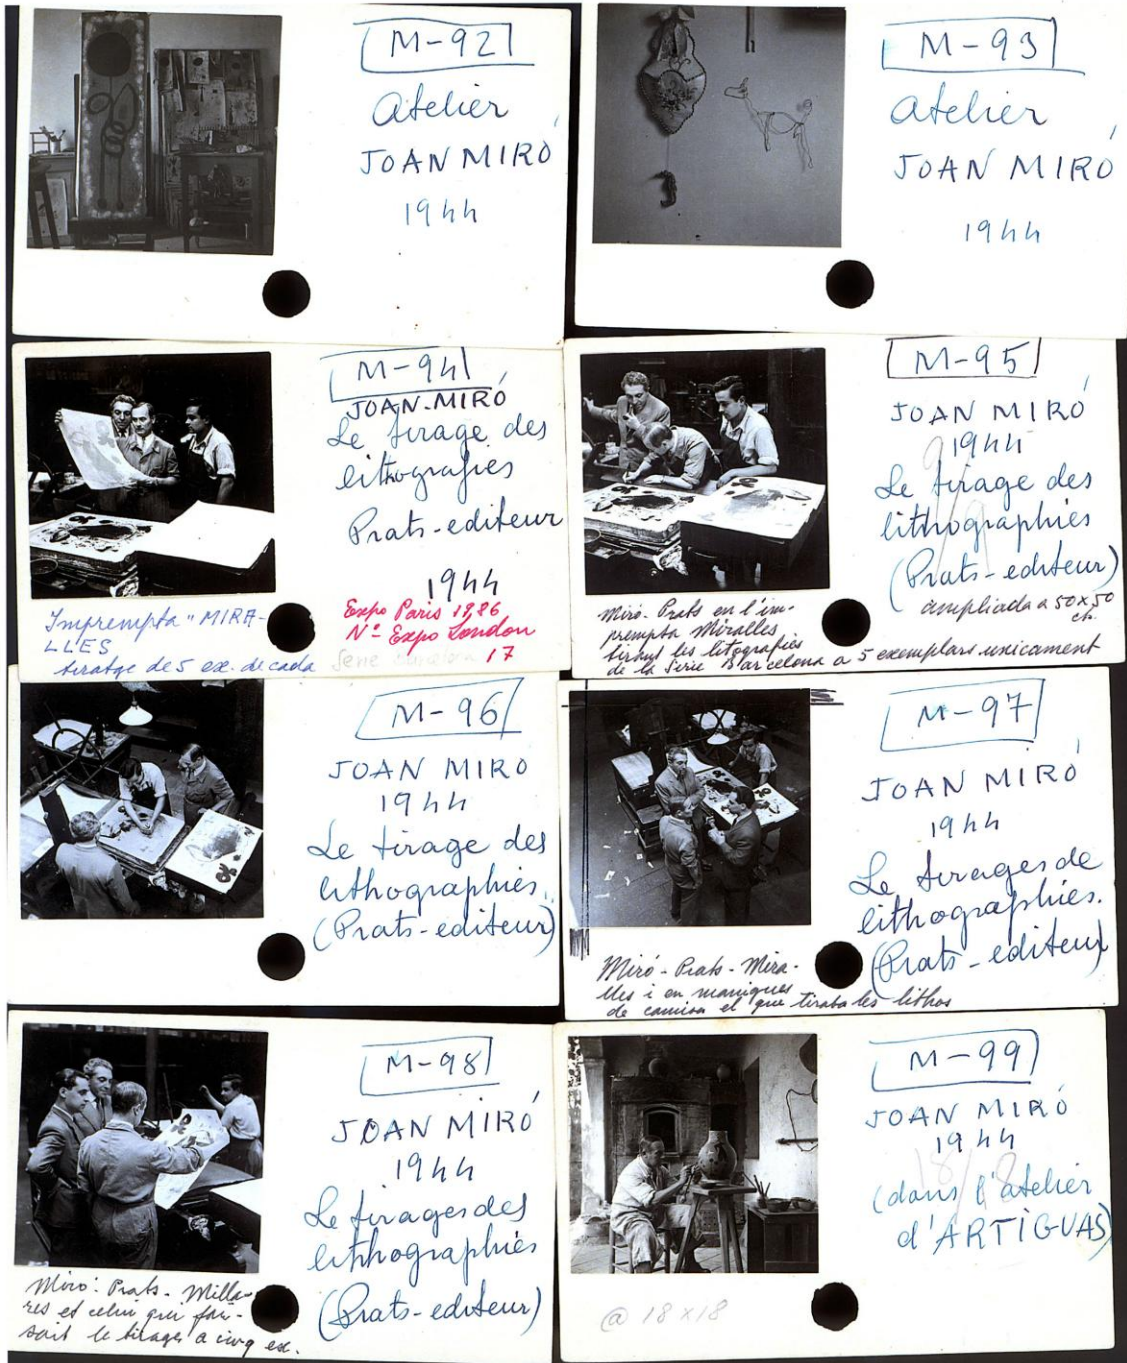 M-92
Atelier
JOAN MIRÓ
1944
M-93
Atelier
JOAN MIRÓ
1944
M-94
JOAN-MIRÓ
Le tirage des
lithografies
Prats-editeur
1944
Imprempta "MIRA-
LLES
tiratge de 5 ex. de cada
Expo Paris 1986
Nº Expo London
17
Serie Barcelona
M-95
JOAN MIRÓ
1944
Le tirage des
lithographies
(Prats-editeur)
ampliada a 50x50
Miró-Prats en l'im-
prempta Miralles
tirant les litografies
de la Serie Barcelona a 5 exemplars unicament
M-96
JOAN MIRÓ
1944
Le tirage des
lithographies.
(Prats-editeur)
M-97
JOAN MIRÓ
1944
Le tirages de
lithographies.
(Prats-editeur)
Miró-Prats-Mira-
lles i en manigues
de camisa el que tiraba les lithos
M-98
JOAN MIRÓ
1944
Le tirages des
lithographies
(Prats-editeur)
Miró: Prats-Milla-
res et celui qui fai-
sait le tirages a cinq ex.
M-99
JOAN MIRÓ
1944
18/18
(dans l'atelier
d'ARTIGUAS)
@ 18x18